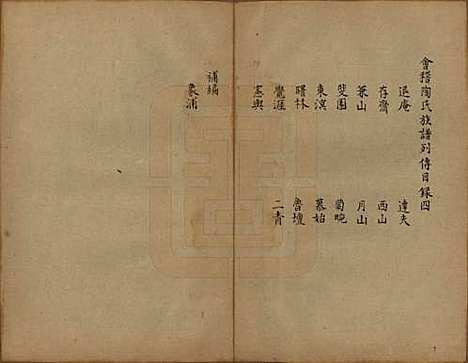 會稽陶氏族譜列傳目錄四
退庵 達夫
存齋 西山
萊山 月山
斐園 菊晚
東溟 慕始
曙林 魯壇
覺涯 二青
憲與
補編
象浦